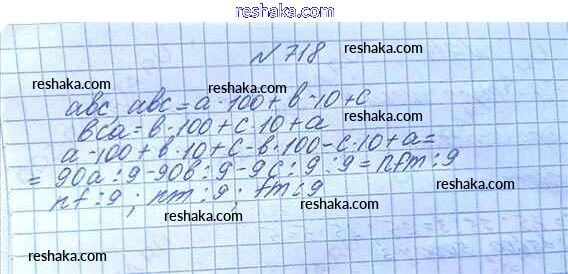 reshaka.com
№718
reshaka.com
reshaka.com
reshaka.com
авс, авс = а · 100 + в · 10 + с
вса = в · 100 + с · 10 + а
reshaka.com
а · 100 + в · 10 + с - в · 100 - с · 10 + а =
= 90а : 9 - 90в : 9 - 9с : 9 : 9 = nfm : 9
reshaka.com
reshaka.com
nf : 9 ; nm : 9 ; fm : 9
reshaka.com
reshaka.com